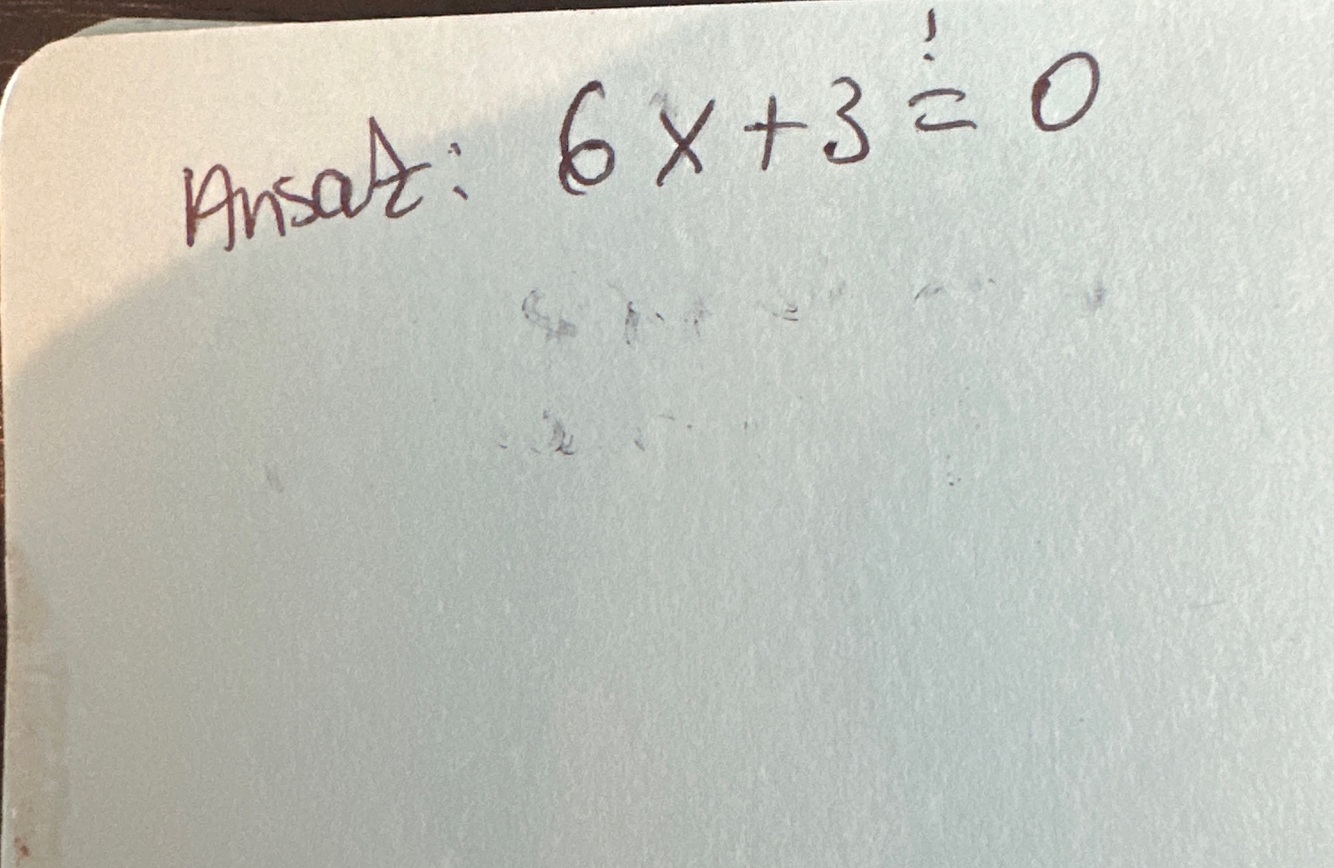 Ansatz: 6x+3 =! 0